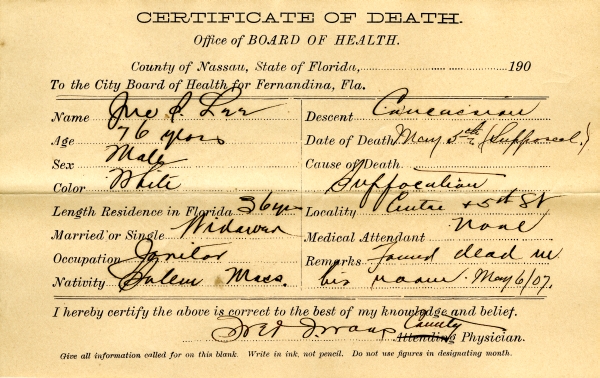 CERTIFICATE OF DEATH.
Office of BOARD OF HEALTH.
County of Nassau, State of Florida, 190
To the City Board of Health for Fernandina, Fla.
Name Jno S. Lee
Age 76 years
Sex Male
Color White
Length Residence in Florida 36 yrs
Married or Single Widower
Occupation Janitor
Nativity Salem Mass.
Descent Caucassian
Date of Death May 5th (Supposed)
Cause of Death
Suffocation
Locality Centre & 5th St
Medical Attendant None
Remarks Found dead in
his room. May 6/07.
I hereby certify the above is correct to the best of my knowledge and belief.
County
Attending Physician.
Give all information called for on this blank. Write in ink, not pencil. Do not use figures in designating month.